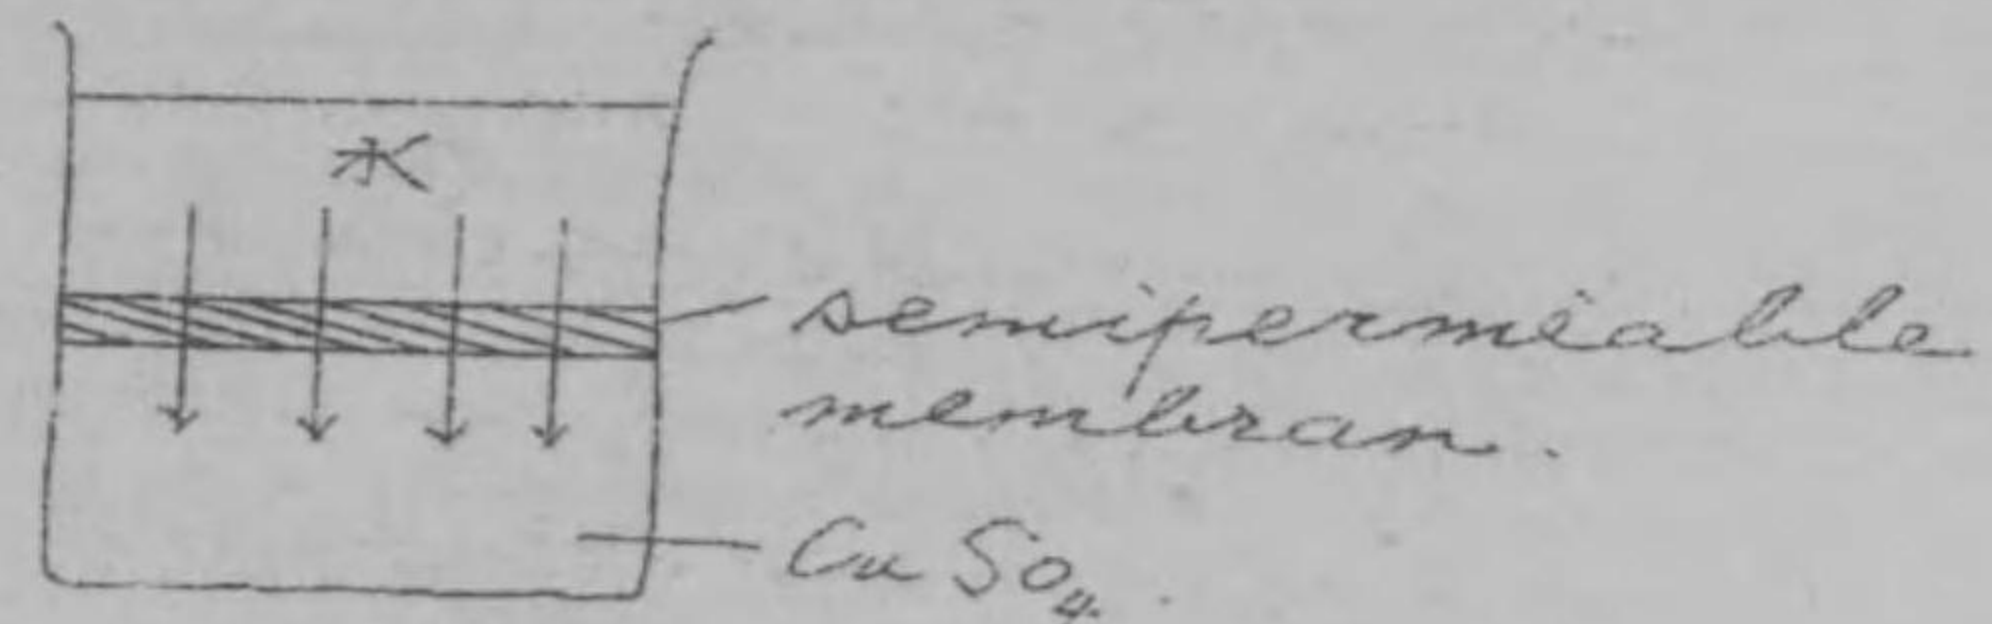 水
semipermeable
membran.
CuSO₄.